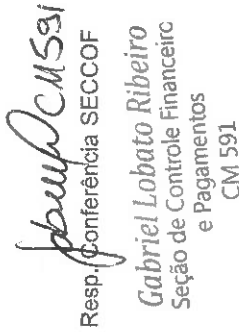 CM591
Resp. Conferência SECCOF
Gabriel Lobato Ribeiro
Seção de Controle Financeiro
e Pagamentos
CM 591